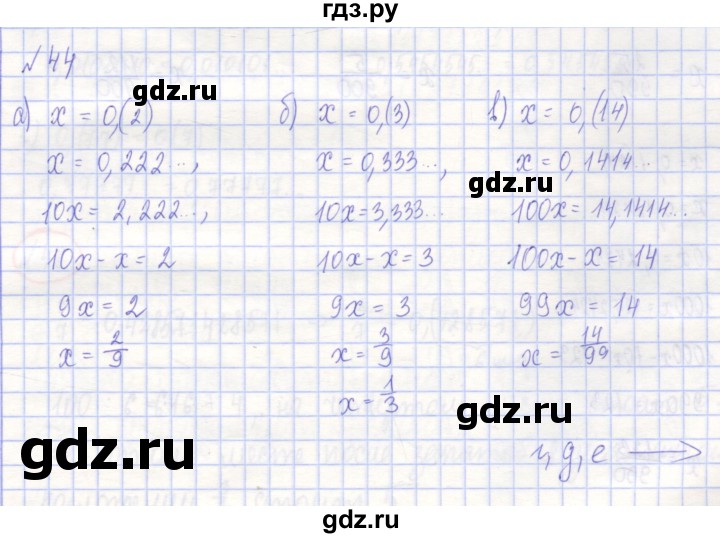 гдз.ру
№ 44
gdz.ru
а) x = 0,(2)
x = 0,222...,
10x = 2,222...,
10x - x = 2
9x = 2
x = 2/9
б) x = 0,(3)
x = 0,333...,
10x = 3,333...
10x - x = 3
9x = 3
x = 3/9
x = 1/3
в) x = 0,(14)
x = 0,1414...
gdz.ru
100x = 14,1414...
100x - x = 14
99x = 14
x = 14/99
gdz.ru
gdz.ru
г, д, е →
gdz.ru